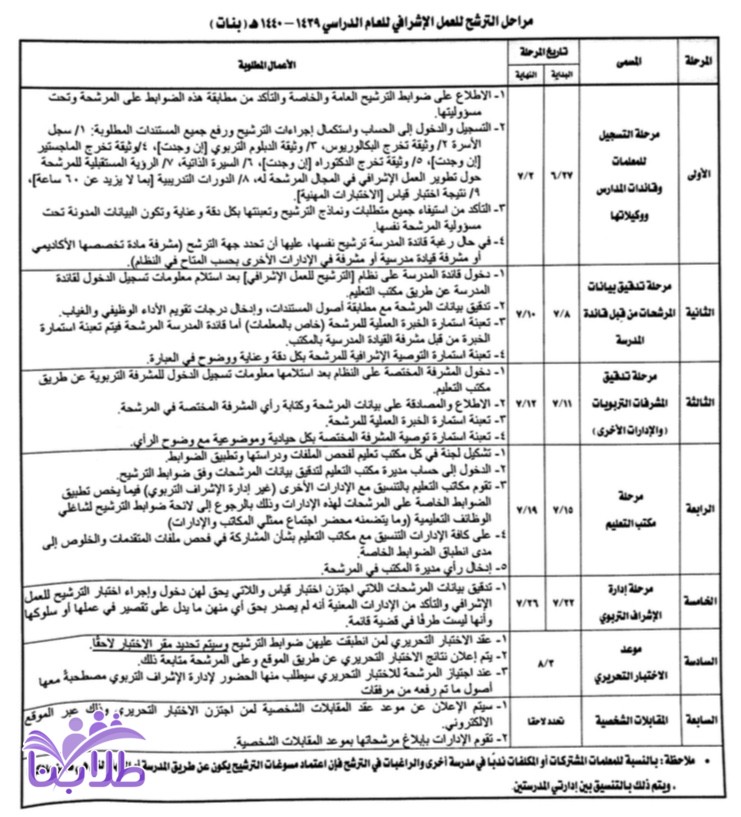 مراحل الترشح للعمل الإشرافي للعام الدراسي ١٤٣٩ – ١٤٤٠ هـ ( بنات )
المرحلة
المسمى
تاريخ المرحلة
البداية
النهاية
الأعمال المطلوبة
الأولى
مرحلة التسجيل
للمعلمات
وقائدات المدارس
ووكيلاتها
٦/٢٧
٧/٢
١- الاطلاع على ضوابط الترشيح العامة والخاصة والتأكد من مطابقة هذه الضوابط على المرشحة وتحت
مسؤوليتها.
٢- التسجيل والدخول إلى الحساب واستكمال إجراءات الترشيح ورفع جميع المستندات المطلوبة: ١/ سجل
الأسرة ٢/ وثيقة تخرج البكالوريوس، ٣/ وثيقة الدبلوم التربوي [إن وجدت]، ٤/وثيقة تخرج الماجستير
[إن وجدت]، ٥/ وثيقة تخرج الدكتوراه [إن وجدت]، ٦/ السيرة الذاتية، ٧/ الرؤية المستقبلية للمرشحة
حول تطوير العمل الإشرافي في المجال المرشحة له، ٨/ الدورات التدريبية [بما لا يزيد عن ٦٠ ساعة]،
٩/ نتيجة اختبار قياس [الاختبارات المهنية].
٣- التأكد من استيفاء جميع متطلبات ونماذج الترشيح وتعبئتها بكل دقة وعناية وتكون البيانات المدونة تحت
مسؤولية المرشحة نفسها.
٤- في حال رغبة قائدة المدرسة ترشيح نفسها، عليها أن تحدد جهة الترشح (مشرفة مادة تخصصها الأكاديمي
أو مشرفة قيادة مدرسية أو مشرفة في الإدارات الأخرى بحسب المتاح في النظام).
الثانية
مرحلة تدقيق بيانات
المرشحات من قبل قائدة
المدرسة
٧/٨
٧/١٠
١- دخول قائدة المدرسة على نظام [الترشيح للعمل الإشرافي] بعد استلام معلومات تسجيل الدخول لقائدة
المدرسة عن طريق مكتب التعليم.
٢- تدقيق بيانات المرشحة مع مطابقة أصول المستندات، وإدخال درجات تقويم الأداء الوظيفي والغياب.
٣- تعبئة استمارة الخبرة العملية للمرشحة (خاص بالمعلمات) أما قائدة المدرسة المرشحة فيتم تعبئة استمارة
الخبرة من قبل مشرفة القيادة المدرسية بالمكتب.
٤- تعبئة استمارة التوصية الإشرافية للمرشحة بكل دقة وعناية ووضوح في العبارة.
الثالثة
مرحلة تدقيق
المشرفات التربويات
(والإدارات الأخرى)
٧/١١
٧/١٢
١- دخول المشرفة المختصة على النظام بعد استلامها معلومات تسجيل الدخول للمشرفة التربوية عن طريق
مكتب التعليم.
٢- الاطلاع والمصادقة على بيانات المرشحة وكتابة رأي المشرفة المختصة في المرشحة.
٣- تعبئة استمارة الخبرة العملية للمرشحة.
٤- تعبئة استمارة توصية المشرفة المختصة بكل حيادية وموضوعية مع وضوح الرأي.
الرابعة
مرحلة
مكتب التعليم
٧/١٥
٧/١٩
١- تشكيل لجنة في كل مكتب تعليم لفحص الملفات ودراستها وتطبيق الضوابط.
٢- الدخول إلى حساب مديرة مكتب التعليم لتدقيق بيانات المرشحات وفق ضوابط الترشيح.
٣- تقوم مكاتب التعليم بالتنسيق مع الإدارات الأخرى (غير إدارة الإشراف التربوي) فيما يخص تطبيق
الضوابط الخاصة على المرشحات لهذه الإدارات وذلك بالرجوع إلى لائحة ضوابط الترشيح لشاغلي
الوظائف التعليمية (وما يتضمنه محضر اجتماع ممثلي المكاتب والإدارات)
٤- على كافة الإدارات التنسيق مع مكاتب التعليم بشأن المشاركة في فحص ملفات المتقدمات والخلوص إلى
مدى انطباق الضوابط الخاصة.
٥- إدخال رأي مديرة المكتب في المرشحة.
الخامسة
مرحلة إدارة
الإشراف التربوي
٧/٢٢
٧/٢٦
١- تدقيق بيانات المرشحات اللاتي اجتزن اختبار قياس واللاتي يحق لهن دخول وإجراء اختبار الترشيح للعمل
الإشرافي والتأكد من الإدارات المعنية أنه لم يصدر بحق أي منهن ما يدل على تقصير في عملها أو سلوكها
وأنها ليست طرفًا في قضية قائمة.
السادسة
موعد
الاختبار التحريري
٨/٢
١- عقد الاختبار التحريري لمن انطبقت عليهن ضوابط الترشيح وسيتم تحديد مقر الاختبار لاحقًا.
٢- يتم إعلان نتائج الاختبار التحريري عن طريق الموقع وعلى المرشحة متابعة ذلك.
٣- عند اجتياز المرشحة للاختبار التحريري سيطلب منها الحضور لإدارة الإشراف التربوي مصطحبةً معها
أصول ما تم رفعه من مرفقات
السابعة
المقابلات الشخصية
تحدد لاحقا
١- سيتم الإعلان عن موعد عقد المقابلات الشخصية لمن اجتزن الاختبار التحريري وذلك عبر الموقع
الالكتروني.
٢- تقوم الإدارات بإبلاغ مرشحاتها بموعد المقابلات الشخصية.
• ملاحظة : بالنسبة للمعلمات المشتركات أو المكلفات ندبًا في مدرسة أخرى والراغبات في الترشح فإن اعتماد مسوغات الترشيح يكون عن طريق المدرسة
، ويتم ذلك بالتنسيق بين إدارتي المدرستين.
طلابنا